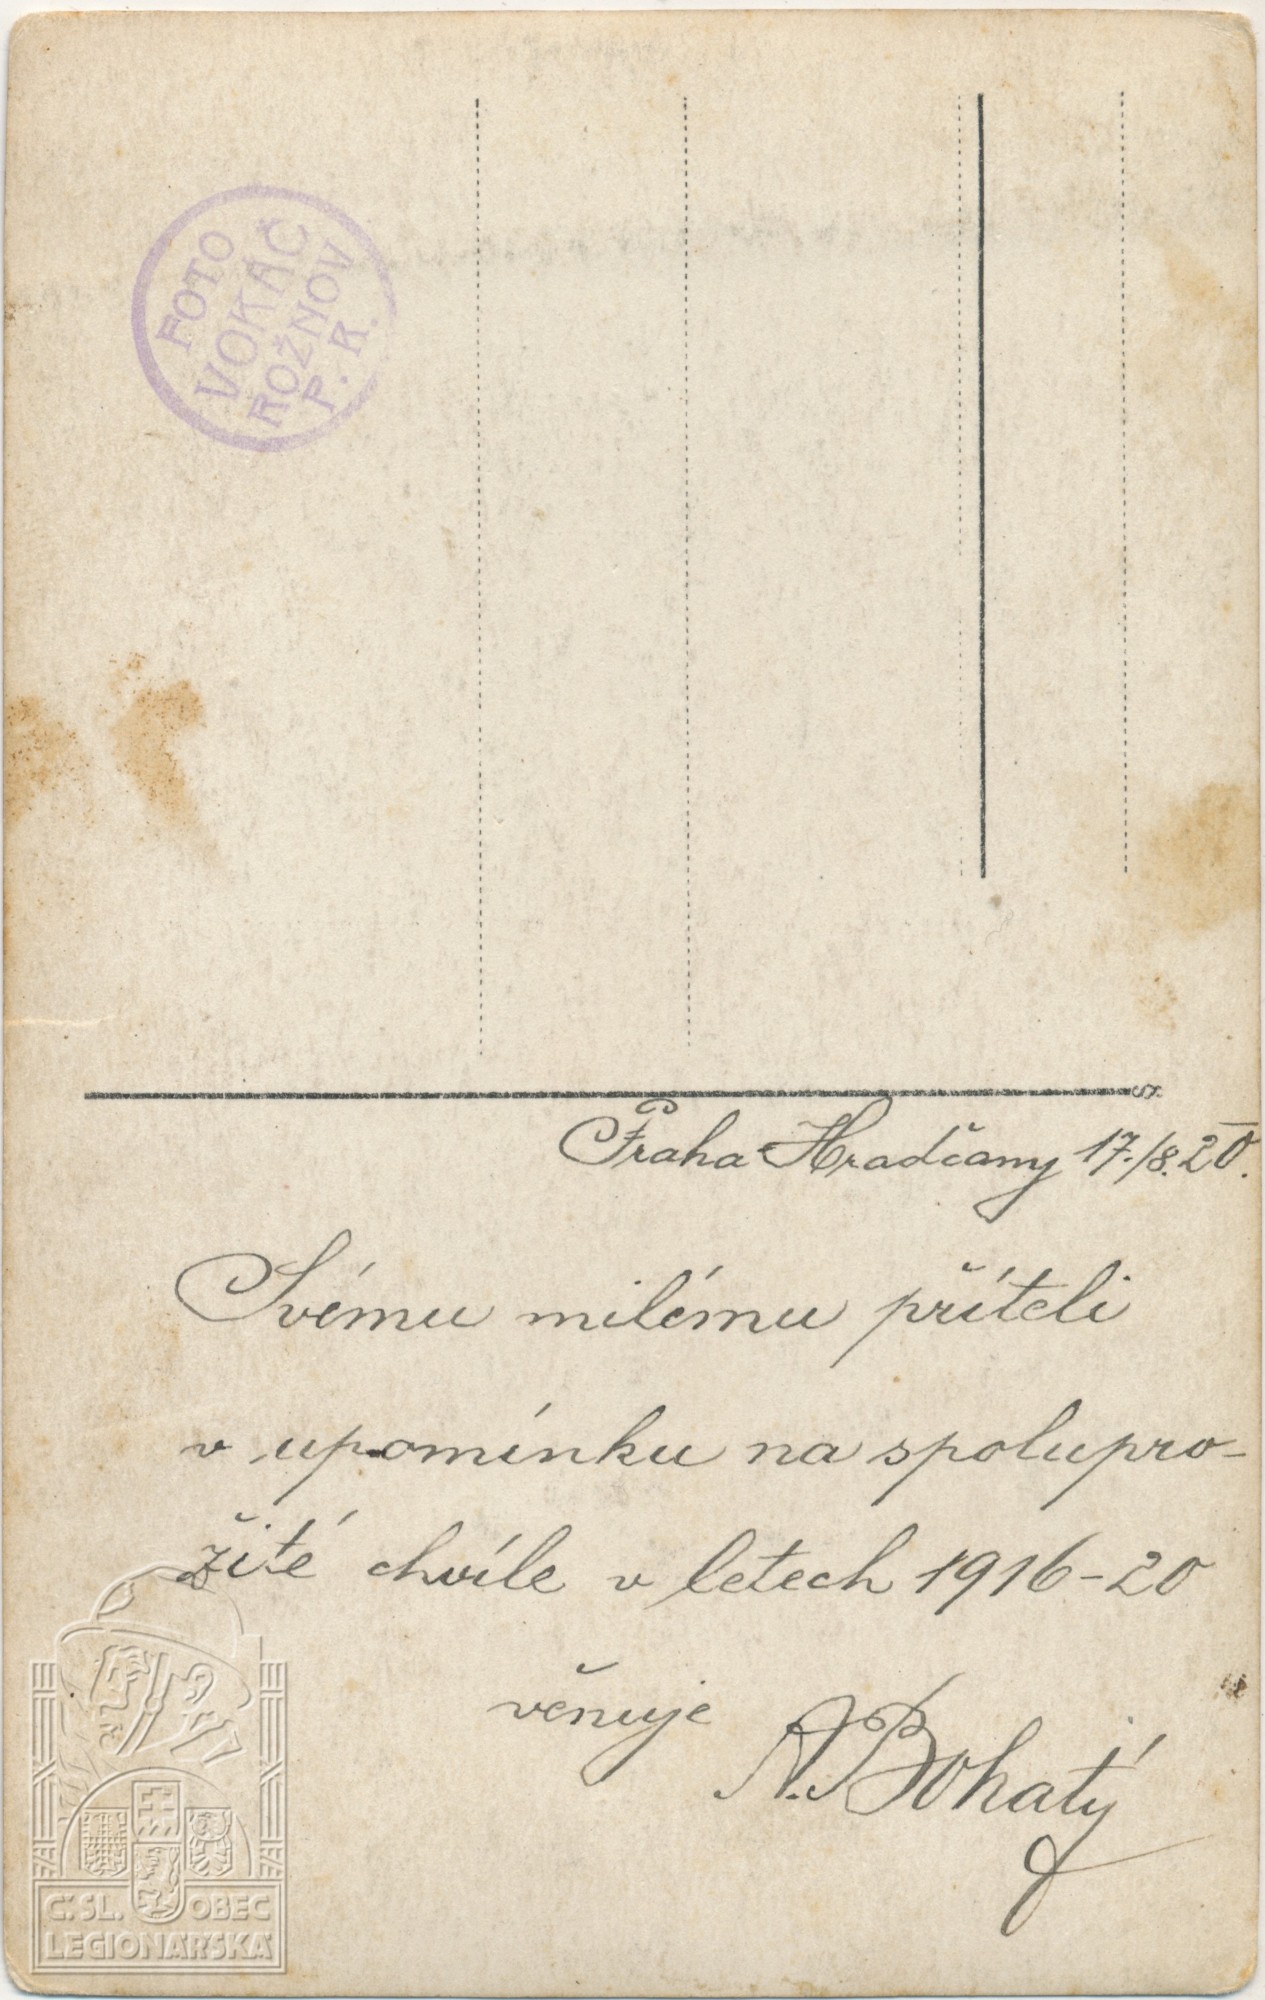 FOTO
VOKÁČ
ROŽNOV
P. R.
Praha-Hradčany 17./8. 20.
Svému milému příteli
v upomínku na spolupro-
žité chvíle v letech 1916-20
věnuje
A. Bohatý
Č. SL. OBEC
LEGIONÁŘSKÁ